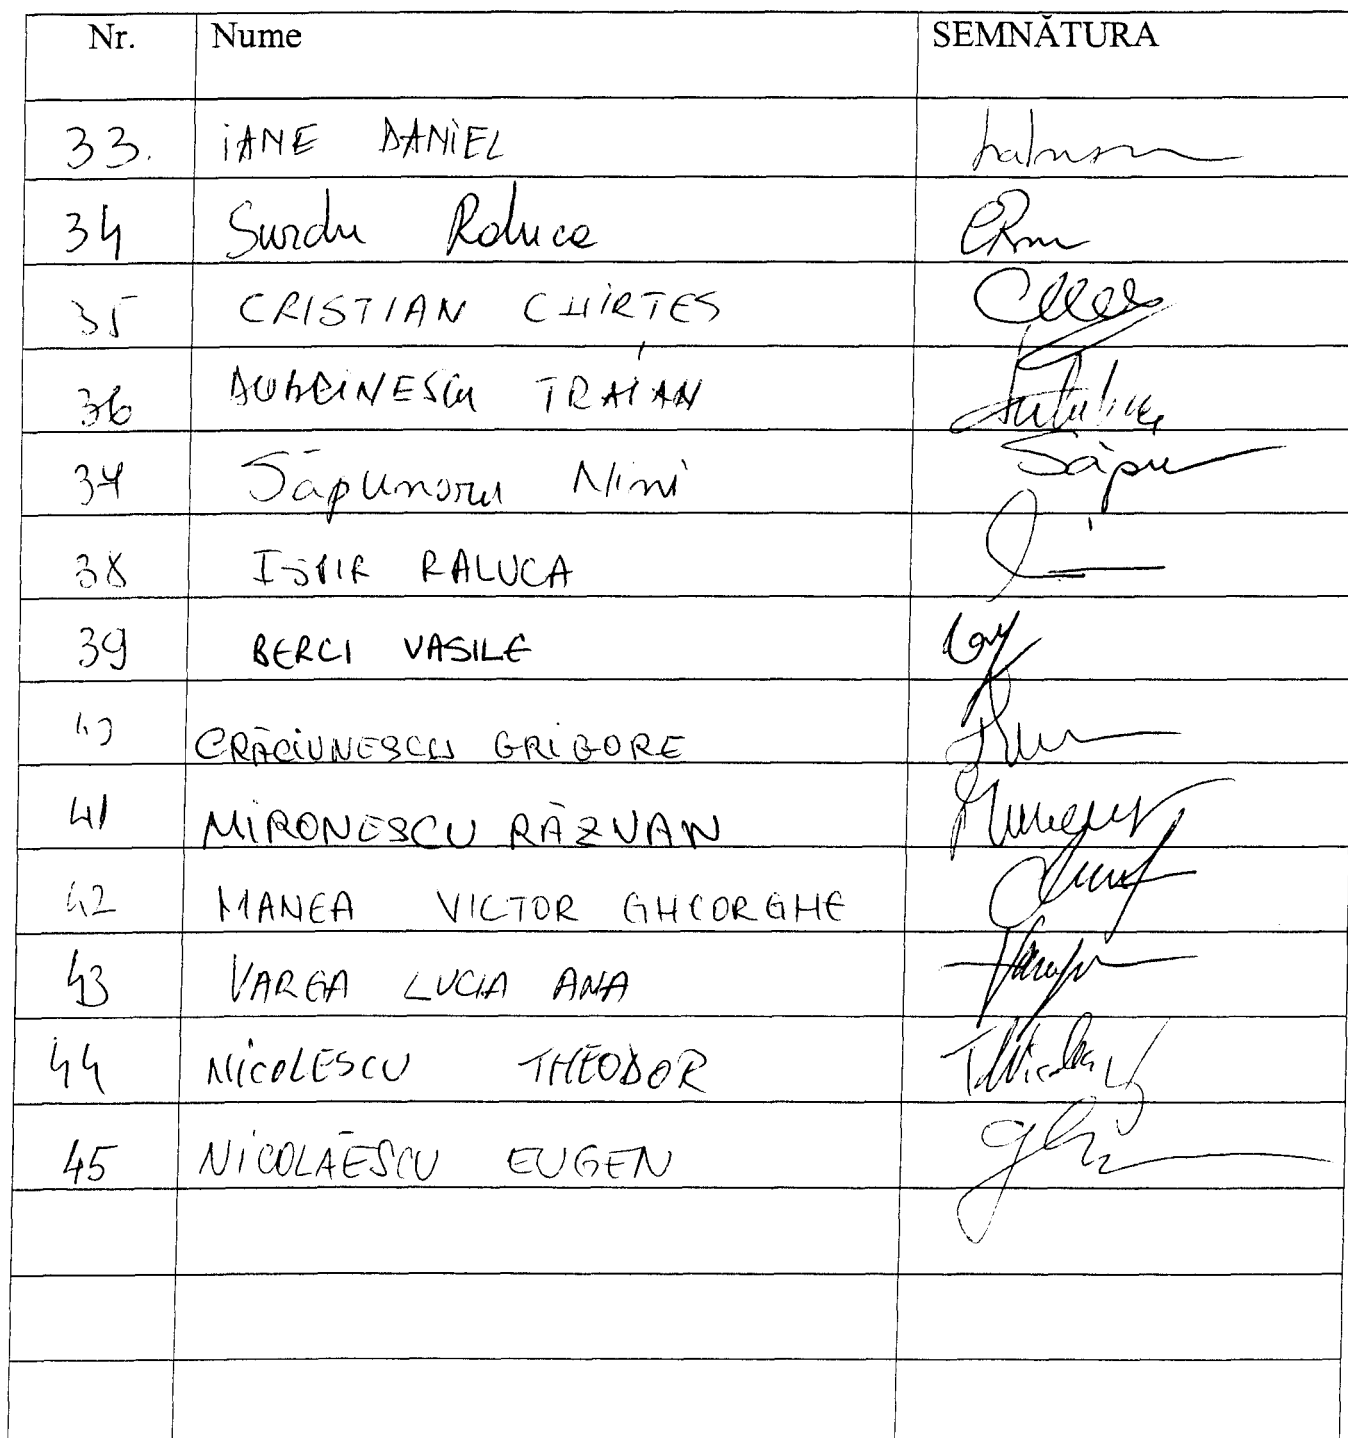 Nr. Nume SEMNĂTURA
33. iANE DANiEL
34 Surdu Raluca
35 CRISTIAN CHIRTES
36 DOBRINESCU TRAIAN
37 Săpunaru Nini
38 ISPIR RALUCA
39 BERCI VASILE
40 CRĂCIUNESCU GRIGORE
41 MIRONESCU RĂZVAN
42 MANEA VICTOR GHEORGHE
43 VARGA LUCIA ANA
44 NICOLESCU THEODOR
45 NICOLĂESCU EUGEN